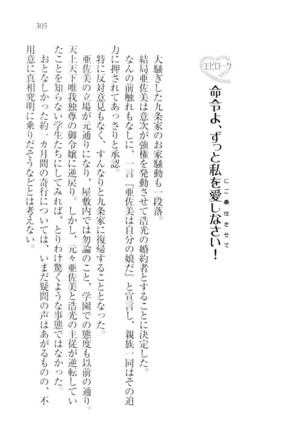 305
エピローグ
命令よ、ずっと私を愛しなさい！
にご奉仕させて
大騒ぎした九条家のお家騒動も一段落。
結局亜佐美は意次が強権を発動させて浩光の婚約者とすることに決定した。
なんの前触れもなしに、一言『亜佐美は自分の娘だ』と宣言し、親族一同はその迫
力に押されてあっさりと承認。
特に反対意見もなく、すんなりと九条家に復帰することとなった。
亜佐美の立場が元通りになり、屋敷内では勿論のこと、学園での態度も以前の通り、
天上天下唯我独尊の御令嬢に逆戻り。しかし、元々亜佐美と浩光の主従が逆転してい
たことを知らない学生たちにしてみれば、とりわけ驚くような事態ではなかった。
おとなしかった約一カ月間の奇行については、いまだ疑問の声はあがるものの、不
用意に真相究明に乗りだそうなどとは考えない。